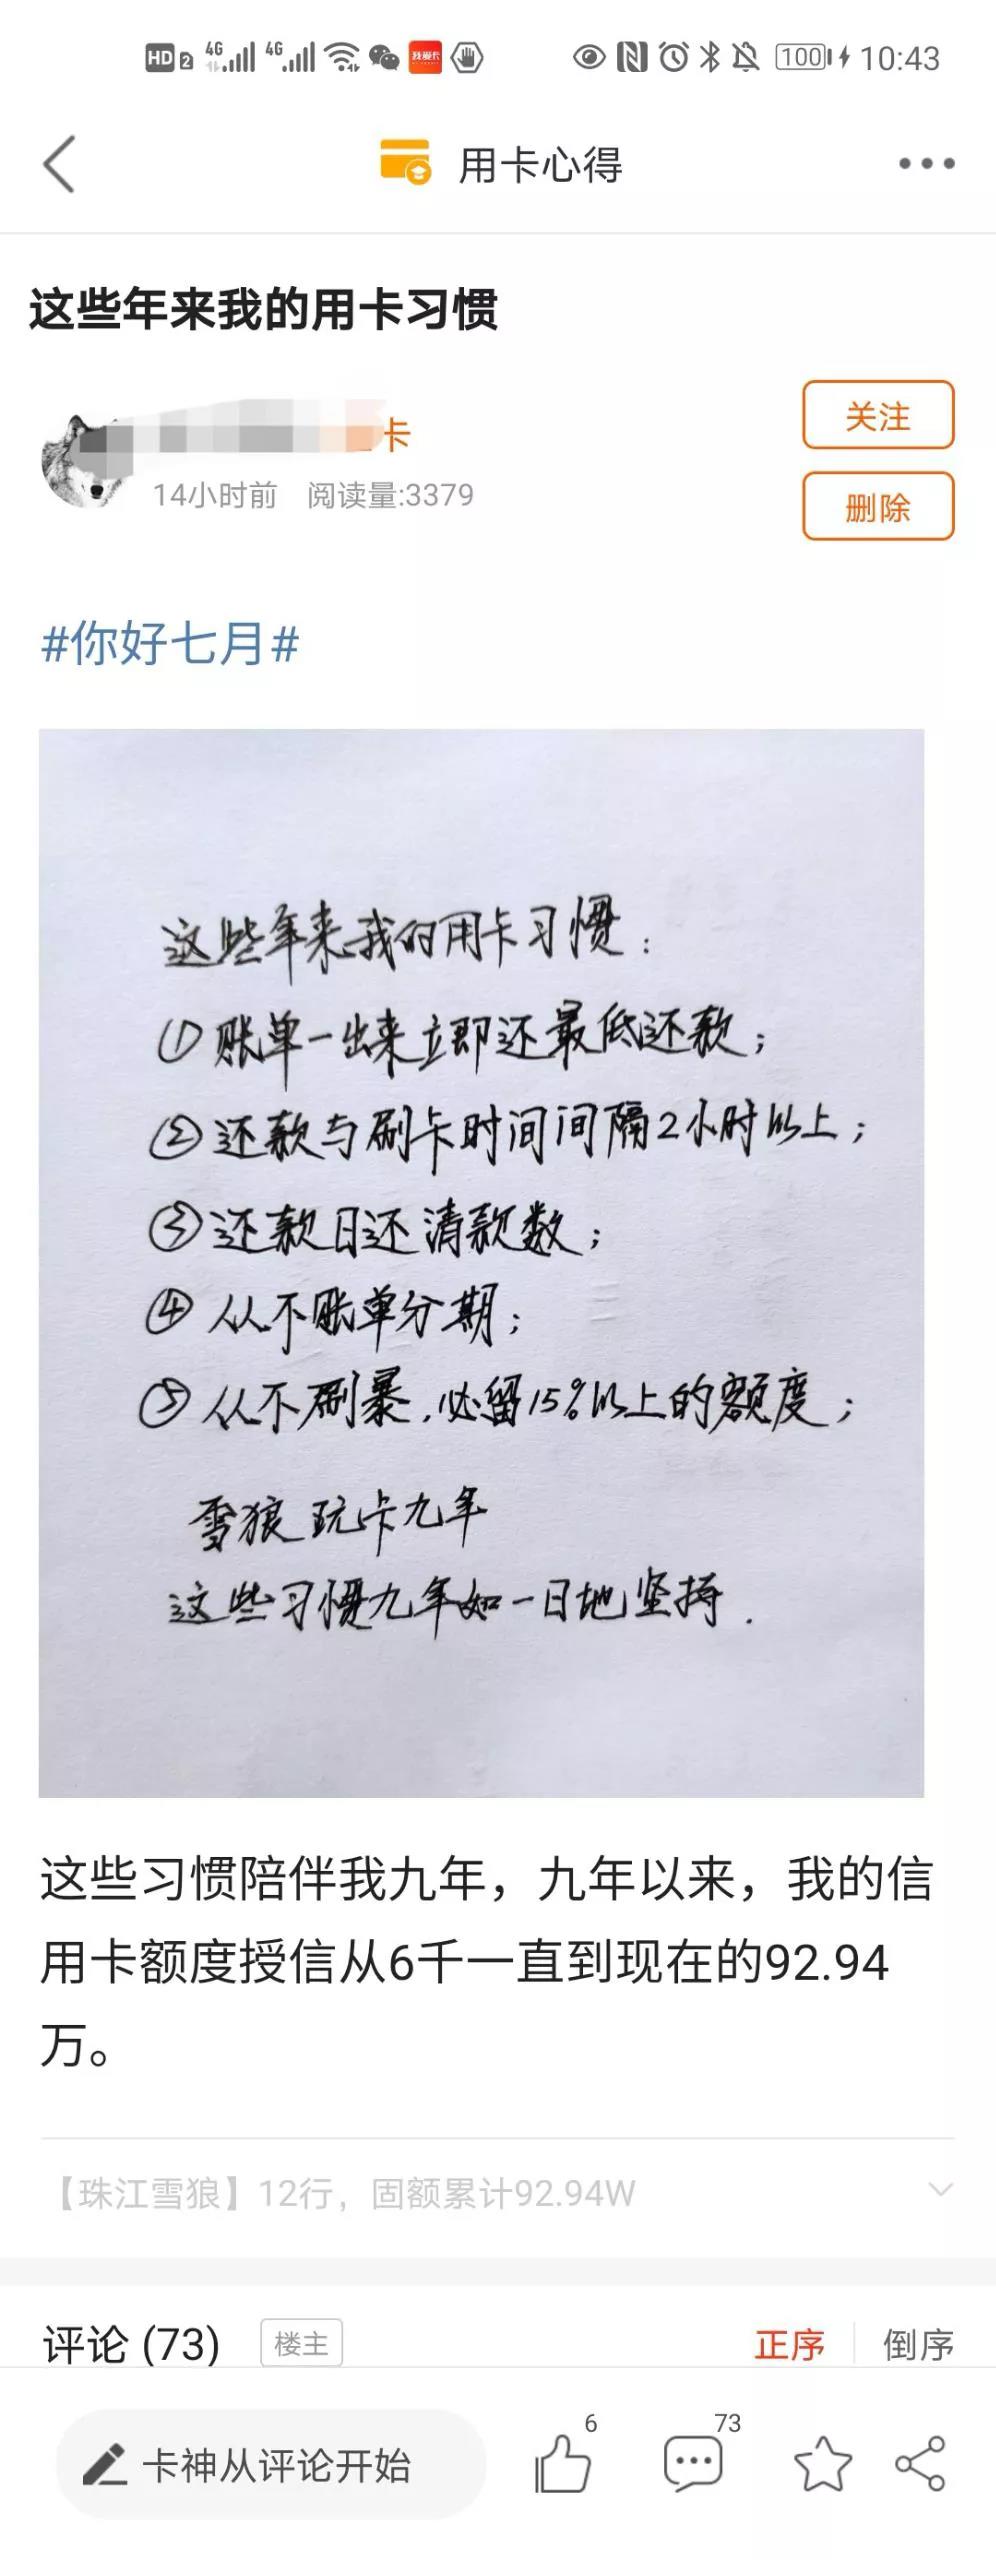 HD 2 4G 4G 我爱卡 100 10:43
用卡心得
这些年来我的用卡习惯
卡
关注
14小时前 阅读量:3379
删除
#你好七月#
这些年来我的用卡习惯：
①账单一出来立即还最低还款；
②还款与刷卡时间间隔2小时以上；
③还款日还清款数；
④从不账单分期；
⑤从不刷暴，必留15%以上的额度；
雪狼玩卡九年
这些习惯九年如一日地坚持.
这些习惯陪伴我九年，九年以来，我的信
用卡额度授信从6千一直到现在的92.94
万。
【珠江雪狼】12行，固额累计92.94W
评论 (73) 楼主 正序 倒序
卡神从评论开始 6 73